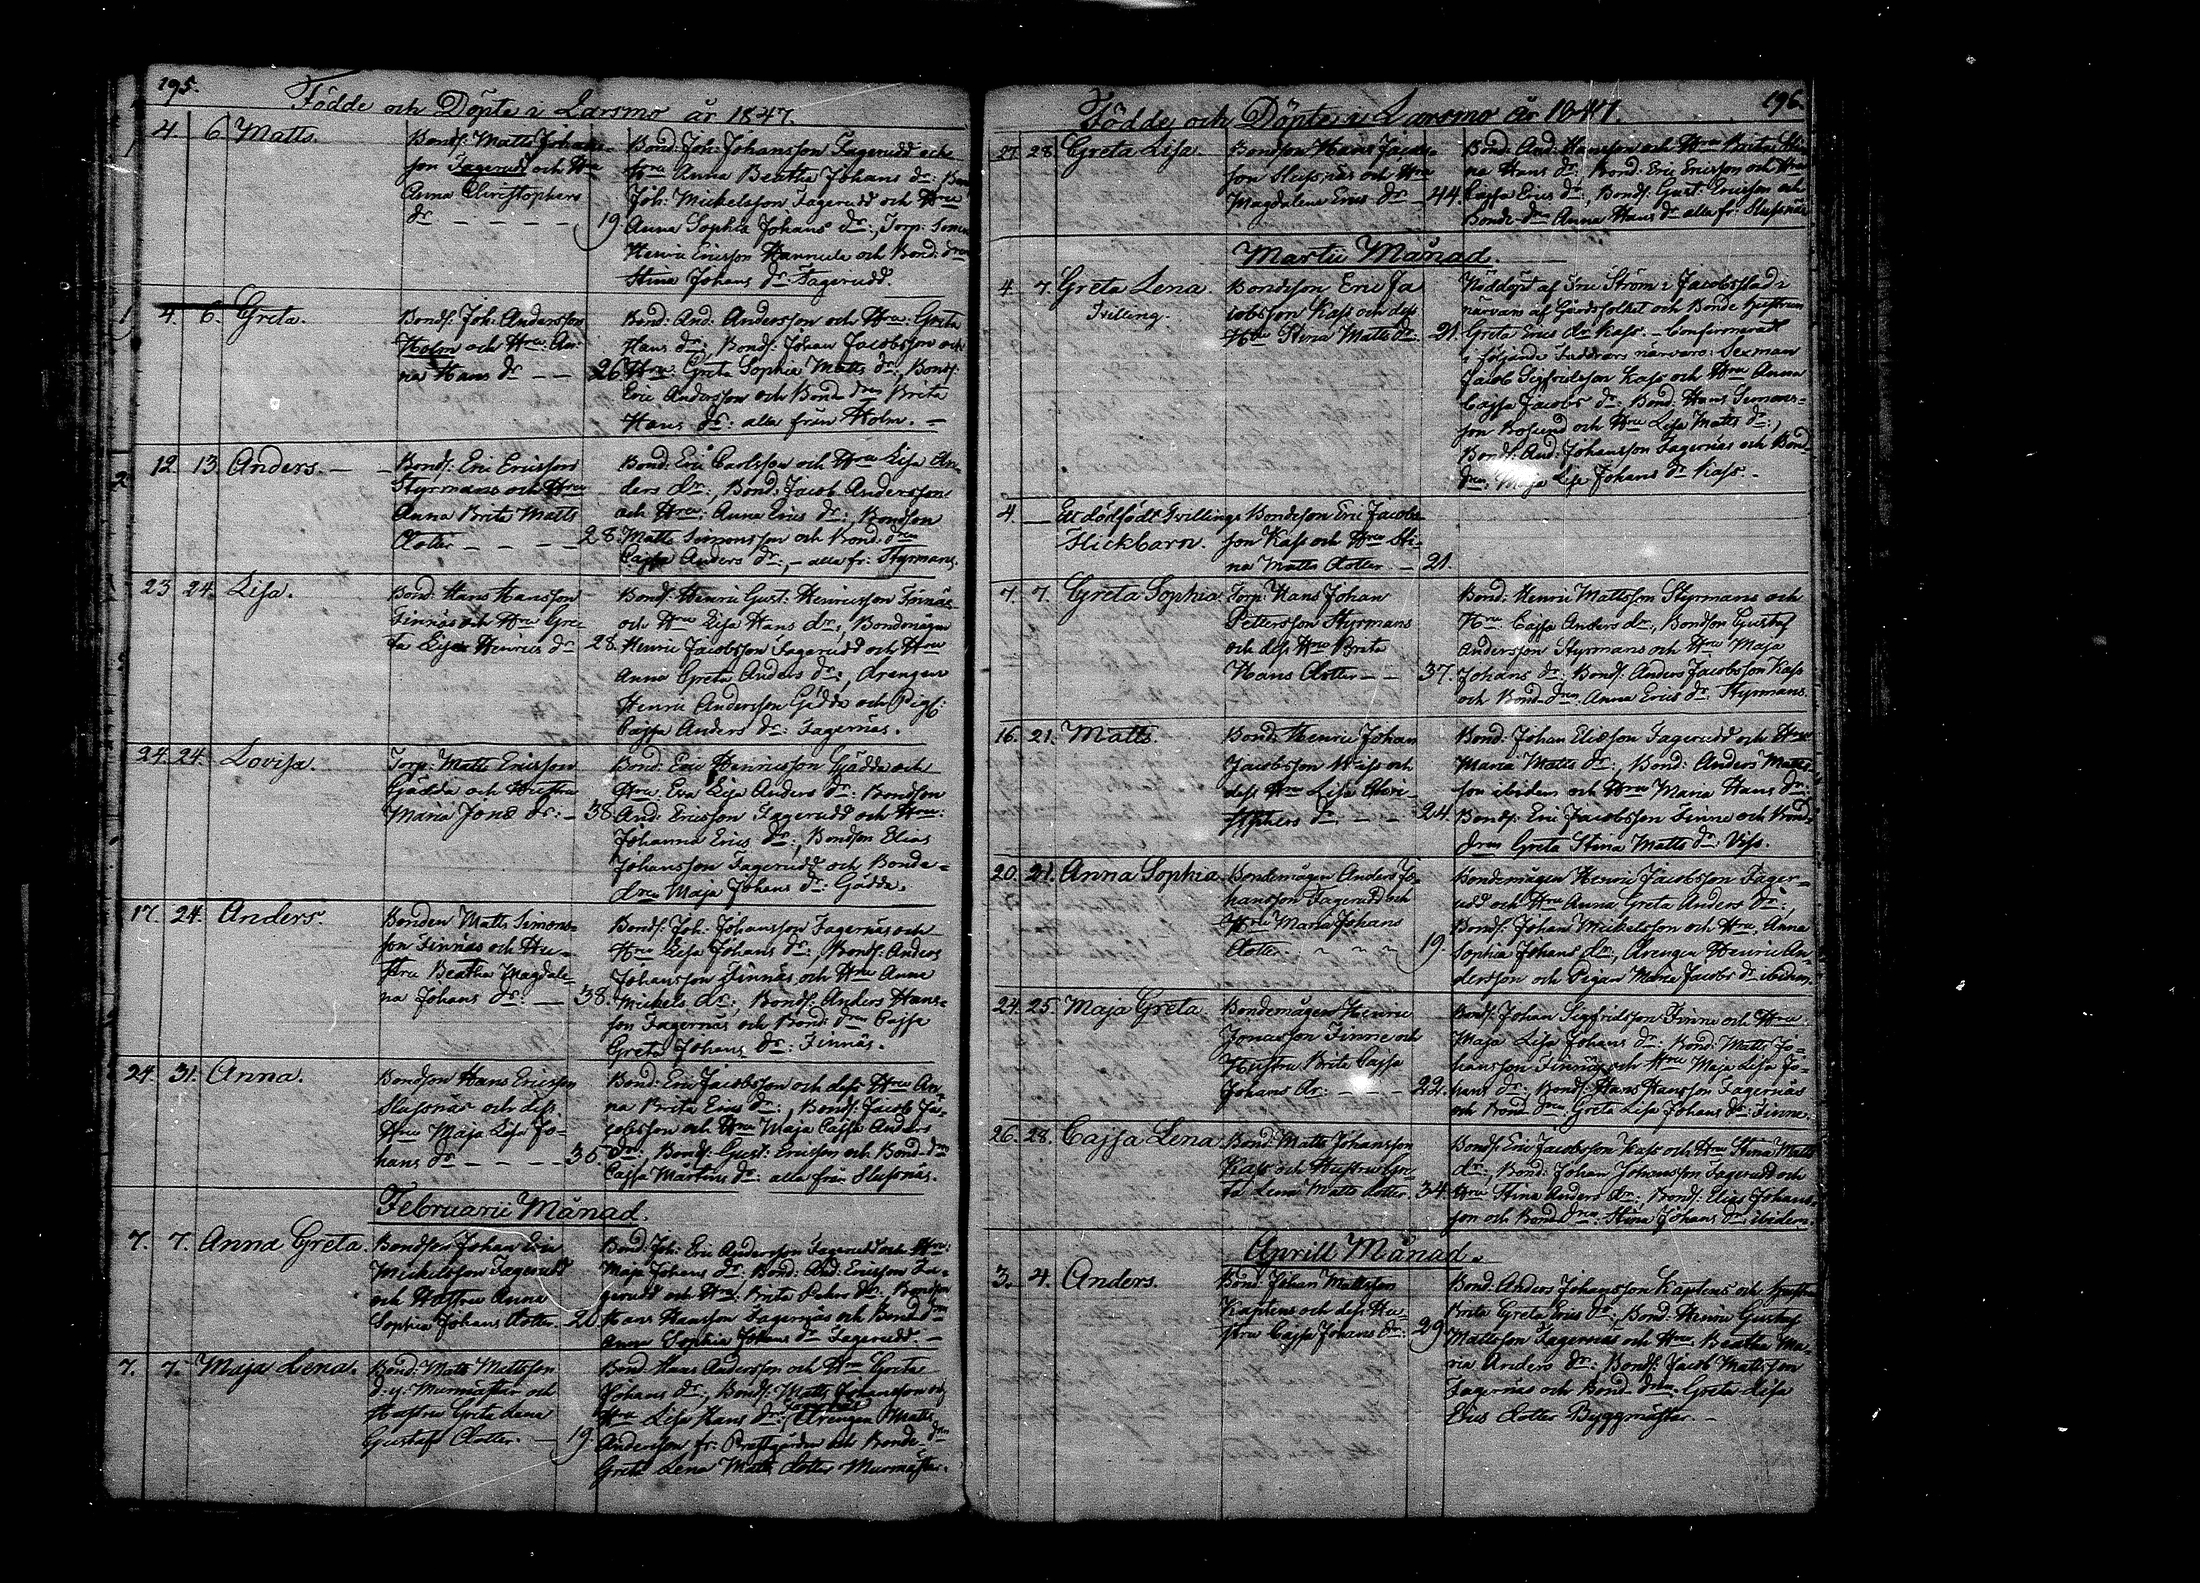 195.
Födde och Döpte i Larsmo år 1847.
4. 6. Matts.
Bonds: Matts Johans-
son Fagerudd och Hru
Anna Christophers
dr - - - - - 19
Bond: Joh: Johansson Fagerudd och
Hru Anna Beatha Johans dr:
Joh: Mickelsson Fagerudd och Hru
Anna Sophia Johans dr:, Torp: Simon
Henric Ericsson Hannula och Bond: dren
Stina Johans dr: Fagerudd.
4. 6. Greta.
Bonds: Joh: Andersson
Holm och Hru: An-
na Hans dr - - 26
Bond: And: Andersson och Hru: Greta
Hans dr: Bonds: Johan Jacobsson och
Hru: Greta Sophia Matts dr:, Bonds:
Eric Andersson och Bond dren Brita
Hans dr: alla från Holm. -
12. 13. Anders. -
Bonds: Eric Ericsson
Styrmans och Hru
Anna Brita Matts
dotter - - - - 28.
Bond: Eric Carlsson och Hru Lisa An-
ders dr:, Bond: Jacob Andersson
och Hru: Anna Erics dr:, Bondson
Matts Simonsson och Bond: dren
Cajsa Anders dr:, - alla fr: Styrmans.
23 24. Lisa.
Bond: Hans Hansson
Finnäs och Hru Gre-
ta Lisa Henrics dr 28.
Bonds: Henric Gust: Henricsson Finnäs
och Hru Lisa Hans dr:, Bondemågen
Henric Jacobsson Fagerudd och Hru
Anna Greta Anders dr:, drengen
Henric Andersson Gädda och Pig:
Cajsa Anders dr: Fagernäs.
24. 24. Lovisa.
Torp: Matts Ericsson
Gädda och Hustru
Maria Jons dr: - 38
Bond: Eric Henricsson Gädda och
Hru: Eva Lisa Anders dr: Bondson
And: Ericsson Fagerudd och Hru:
Johanna Erics dr:, Bondson Elias
Johansson Fagerudd och Bonde-
dren Maja Johans dr: Gädda.
17. 24. Anders.
Bonden Matts Simons-
son Finnäs och Hu-
stru Beatha Magdale-
na Johans dr: - 38.
Bonds: Joh: Johansson Fagernäs och
Hru Lisa Johans dr:, Bonds: Anders
Johansson Finnäs och Hru Anna
Mickels dr:, Bonds: Anders Hans-
son Fagernäs och Bond: dren Cajsa
Greta Johans dr: Finnäs.
24. 31. Anna.
Bondson Hans Ericsson
Slussnäs och dess
Hru Maja Lisa Jo-
hans dr - - - - 35.
Bond: Eric Jacobsson och dess Hru An-
na Brita Erics dr:, Bonds: Jacob Ja-
cobsson och Hru Maja Cajsa Anders
dr:, Bonds: Gust: Ericsson och Bond-dren
Cajsa Mårtens dr: alla från Slussnäs.
Februarii Månad.
7. 7. Anna Greta.
Bondson Johan Eric
Mickelsson Fagerudd
och Hustru Anna
Sophia Johans dotter. 20.
Bond: Joh: Eric Andersson Fagerudd och Hru:
Maja Johans dr: Bond: And: Ericsson Fa-
gerudd och Hru: Brita Pehrs dr:, Bondson
Hans Hansson Fagernäs och Bond dren
Anna Sophia Johans dr Fagerudd. -
7. 7. Maja Lena.
Bond: Matts Mattsson
d. y. Murmästar och
Hustru Greta Lena
Gustafs dotter. - 19.
Bond Hans Andersson och Hru Greta
Johans dr:, Bonds: Matts Johansson och
Hru Lisa Hans dr: Drengen Matts
Andersson fr: Prestgården och Bonde-dren
Greta Lena Matts dotter Murmästar.
196.
Födde och Döpte i Larsmo år 1847.
27. 28. Greta Lisa.
Bondson Hans Jacobs-
son Slussnäs och Hru
Magdalena Erics dr - 44.
Bond: And: Hansson och Hru Brita Sti-
na Hans dr: Bond: Eric Ericsson och Hru
Cajsa Erics dr:, Bonds: Gust: Ericsson och
Bonde-dren Anna Hans dr alla fr: Slussnäs
Martii Månad.
4. 7. Greta Lena.
Tvilling.
Bondson Eric Ja-
cobsson Kass och dess
Hru Stina Matts dr: 21.
Nöddöpt af Fru Ström i Jacobstad i
närvaro af Gårdsfolket och Bonde hustrun
Greta Erics dr Kass. - Confirmerad
i följande Faddrars närvaro: Sexman
Jacob Sigfridsson Kass och Hru Anna
Cajsa Jacobs dr: Bond: Hans Simons-
son Bosund och Hru Lisa Matts dr:,
Bonds: And: Johansson Fagernäs och Bond
dren, Maja Lisa Johans dr Kass. -
4. - Ett dödfödt Tvillings
Flickbarn.
Bondson Eric Jacobs-
son Kass och Hru Sti-
na Matts dotter - 21.
7. 7. Greta Sophia.
Torp: Hans Johan
Pettersson Styrmans
och dess Hru Brita
Hans dotter - - 37.
Bond: Henric Mattsson Styrmans och
Hru Cajsa Anders dr:, Bondson Gustaf
Andersson Styrmans och Hru Maja
Johans dr: Bonds: Anders Jacobsson Kass
och Bond dren Anna Erics dr: Styrmans.
16. 21. Matts.
Bond: Henric Johan
Jacobsson Wiss och
dess Hru Lisa Chri-
stophers dr - - - 24.
Bond: Johan Eliasson Fagerudd och Hru
Maria Matts dr:, Bond: Anders Matts-
son ibidem och Hru Maria Hans dr:
Bonds: Eric Jacobsson Finne och Bond-
dren Greta Stina Matts dr: Viss.
20. 21. Anna Sophia.
Bondemågen Anders Jo-
hansson Fagerudd och
Hru Maria Johans
dotter. - - - 19
Bondemågen Henric Jacobsson Fager-
udd och Hru Anna Greta Anders dr:,
Bonds: Johan Mickelsson och Hru Anna
Sophia Johans dr:, Drengen Henric An-
dersson och Pigan Maria Jacobs dr ibidem.
24. 25. Maja Greta.
Bondemågen Henric
Jonasson Finne och
Hustru Brita Cajsa
Johans dr: - - - 22.
Bonds: Johan Sigfridsson Finne och Hru
Maja Lisa Johans dr: Bond: Matts Jo-
hansson Finnäs och Hru Maja Lisa Jo-
hans dr: Bonds: Hans Hansson Fagernäs
och Bond dren Greta Lisa Johans dr: Finne.
26. 28. Cajsa Lena.
Bond: Matts Johansson
Kass och Hustru Gre-
ta Lena Matts dotter. 34.
Bonds: Eric Jacobsson Kass och Hru Stina Matts
dr:, Bond: Johan Johansson Fagerudd och
Hru Stina Anders dr: Bonds: Elias Johans-
son och Bond dren Stina Johans dr: ibidem.
Aprill Månad.
3. 4. Anders.
Bond: Johan Mattsson
Kaptens och dess Hu-
stru Cajsa Johans dr: 29.
Bond: Anders Johansson Kaptens och Hustru
Brita Greta Erics dr: Bond: Henric Gustaf
Mattsson Fagernäs och Hru Beatha Ma-
ria Anders dr: Bonds: Jacob Mattsson
Fagernäs och Bond dren Greta Lisa
Erics dotter Byggmäster. -